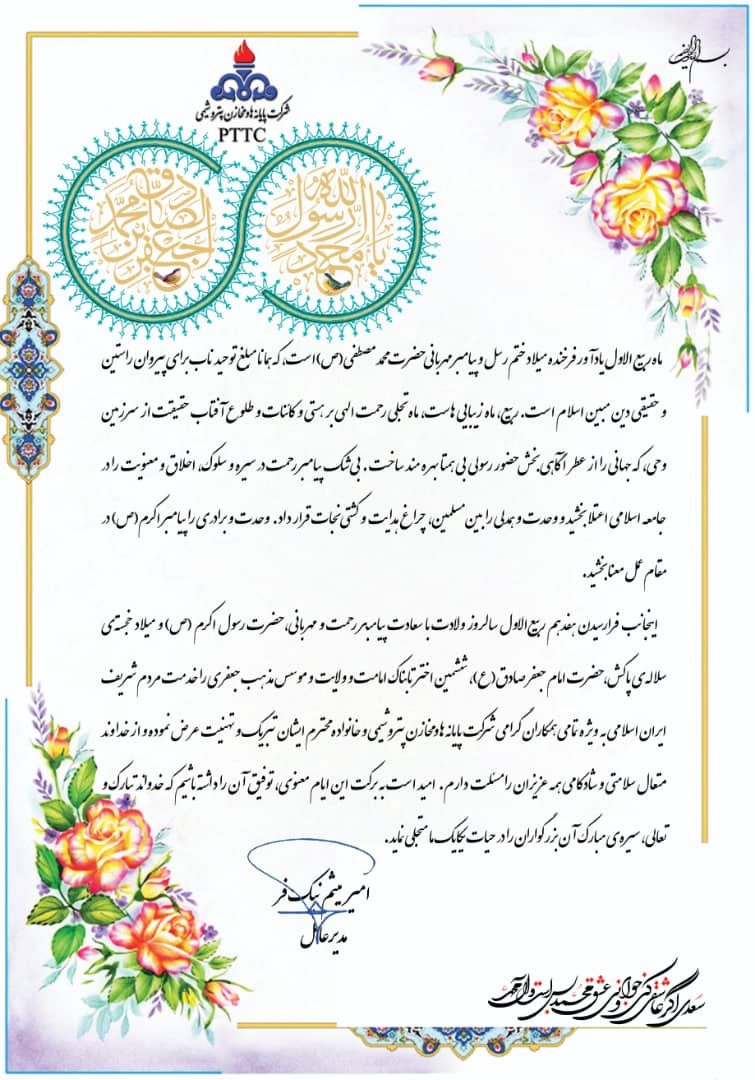 بسم الله الرحمن الرحیم
شرکت پایانه ها و مخازن پتروشیمی
PTTC
یا محمد رسول الله
جعفر بن محمد الصادق
ماه ربیع الاول یادآور فرخنده میلاد ختم رسل و پیامبر مهربانی حضرت محمد مصطفی (ص) است، که همانا مبلغ توحید ناب برای پیروان راستین
و حقیقی دین مبین اسلام است. ربیع، ماه زیبایی هاست، ماه تجلی رحمت الهی بر هستی و کائنات و طلوع آفتاب حقیقت از سرزمین
وحی، که جهانی را از عطر آگاهی بخش حضور رسولی بی همتا بهره مند ساخت. بی شک پیامبر رحمت در سیره و سلوک، اخلاق و معنویت را در
جامعه اسلامی اعتلا بخشید و وحدت و همدلی را بین مسلمین، چراغ هدایت و کشتی نجات قرار داد. وحدت و برادری را پیامبر اکرم (ص) در
مقام عمل معنا بخشید.
اینجانب فرارسیدن هفدهم ربیع الاول سالروز ولادت با سعادت پیامبر رحمت و مهربانی، حضرت رسول اکرم (ص) و میلاد خجسته‌ی
سلاله‌ی پاکش، حضرت امام جعفر صادق (ع)، ششمین اختر تابناک امامت و ولایت و موسس مذهب جعفری را خدمت مردم شریف
ایران اسلامی به ویژه تمامی همکاران گرامی شرکت پایانه ها و مخازن پتروشیمی و خانواده محترم ایشان تبریک و تهنیت عرض نموده و از خداوند
متعال سلامتی و شادکامی همه عزیزان را مسئلت دارم. امید است به برکت این ایام معنوی، توفیق آن را داشته باشیم که خداوند تبارک و
تعالی، سیره‌ی مبارک آن بزرگواران را در حیات یکایک ما متجلی نماید.
امیر میثم نیک فر
مدیرعامل
سعدی اگر عاشقی کنی و جوانی عشق محمد بس است و آل محمد